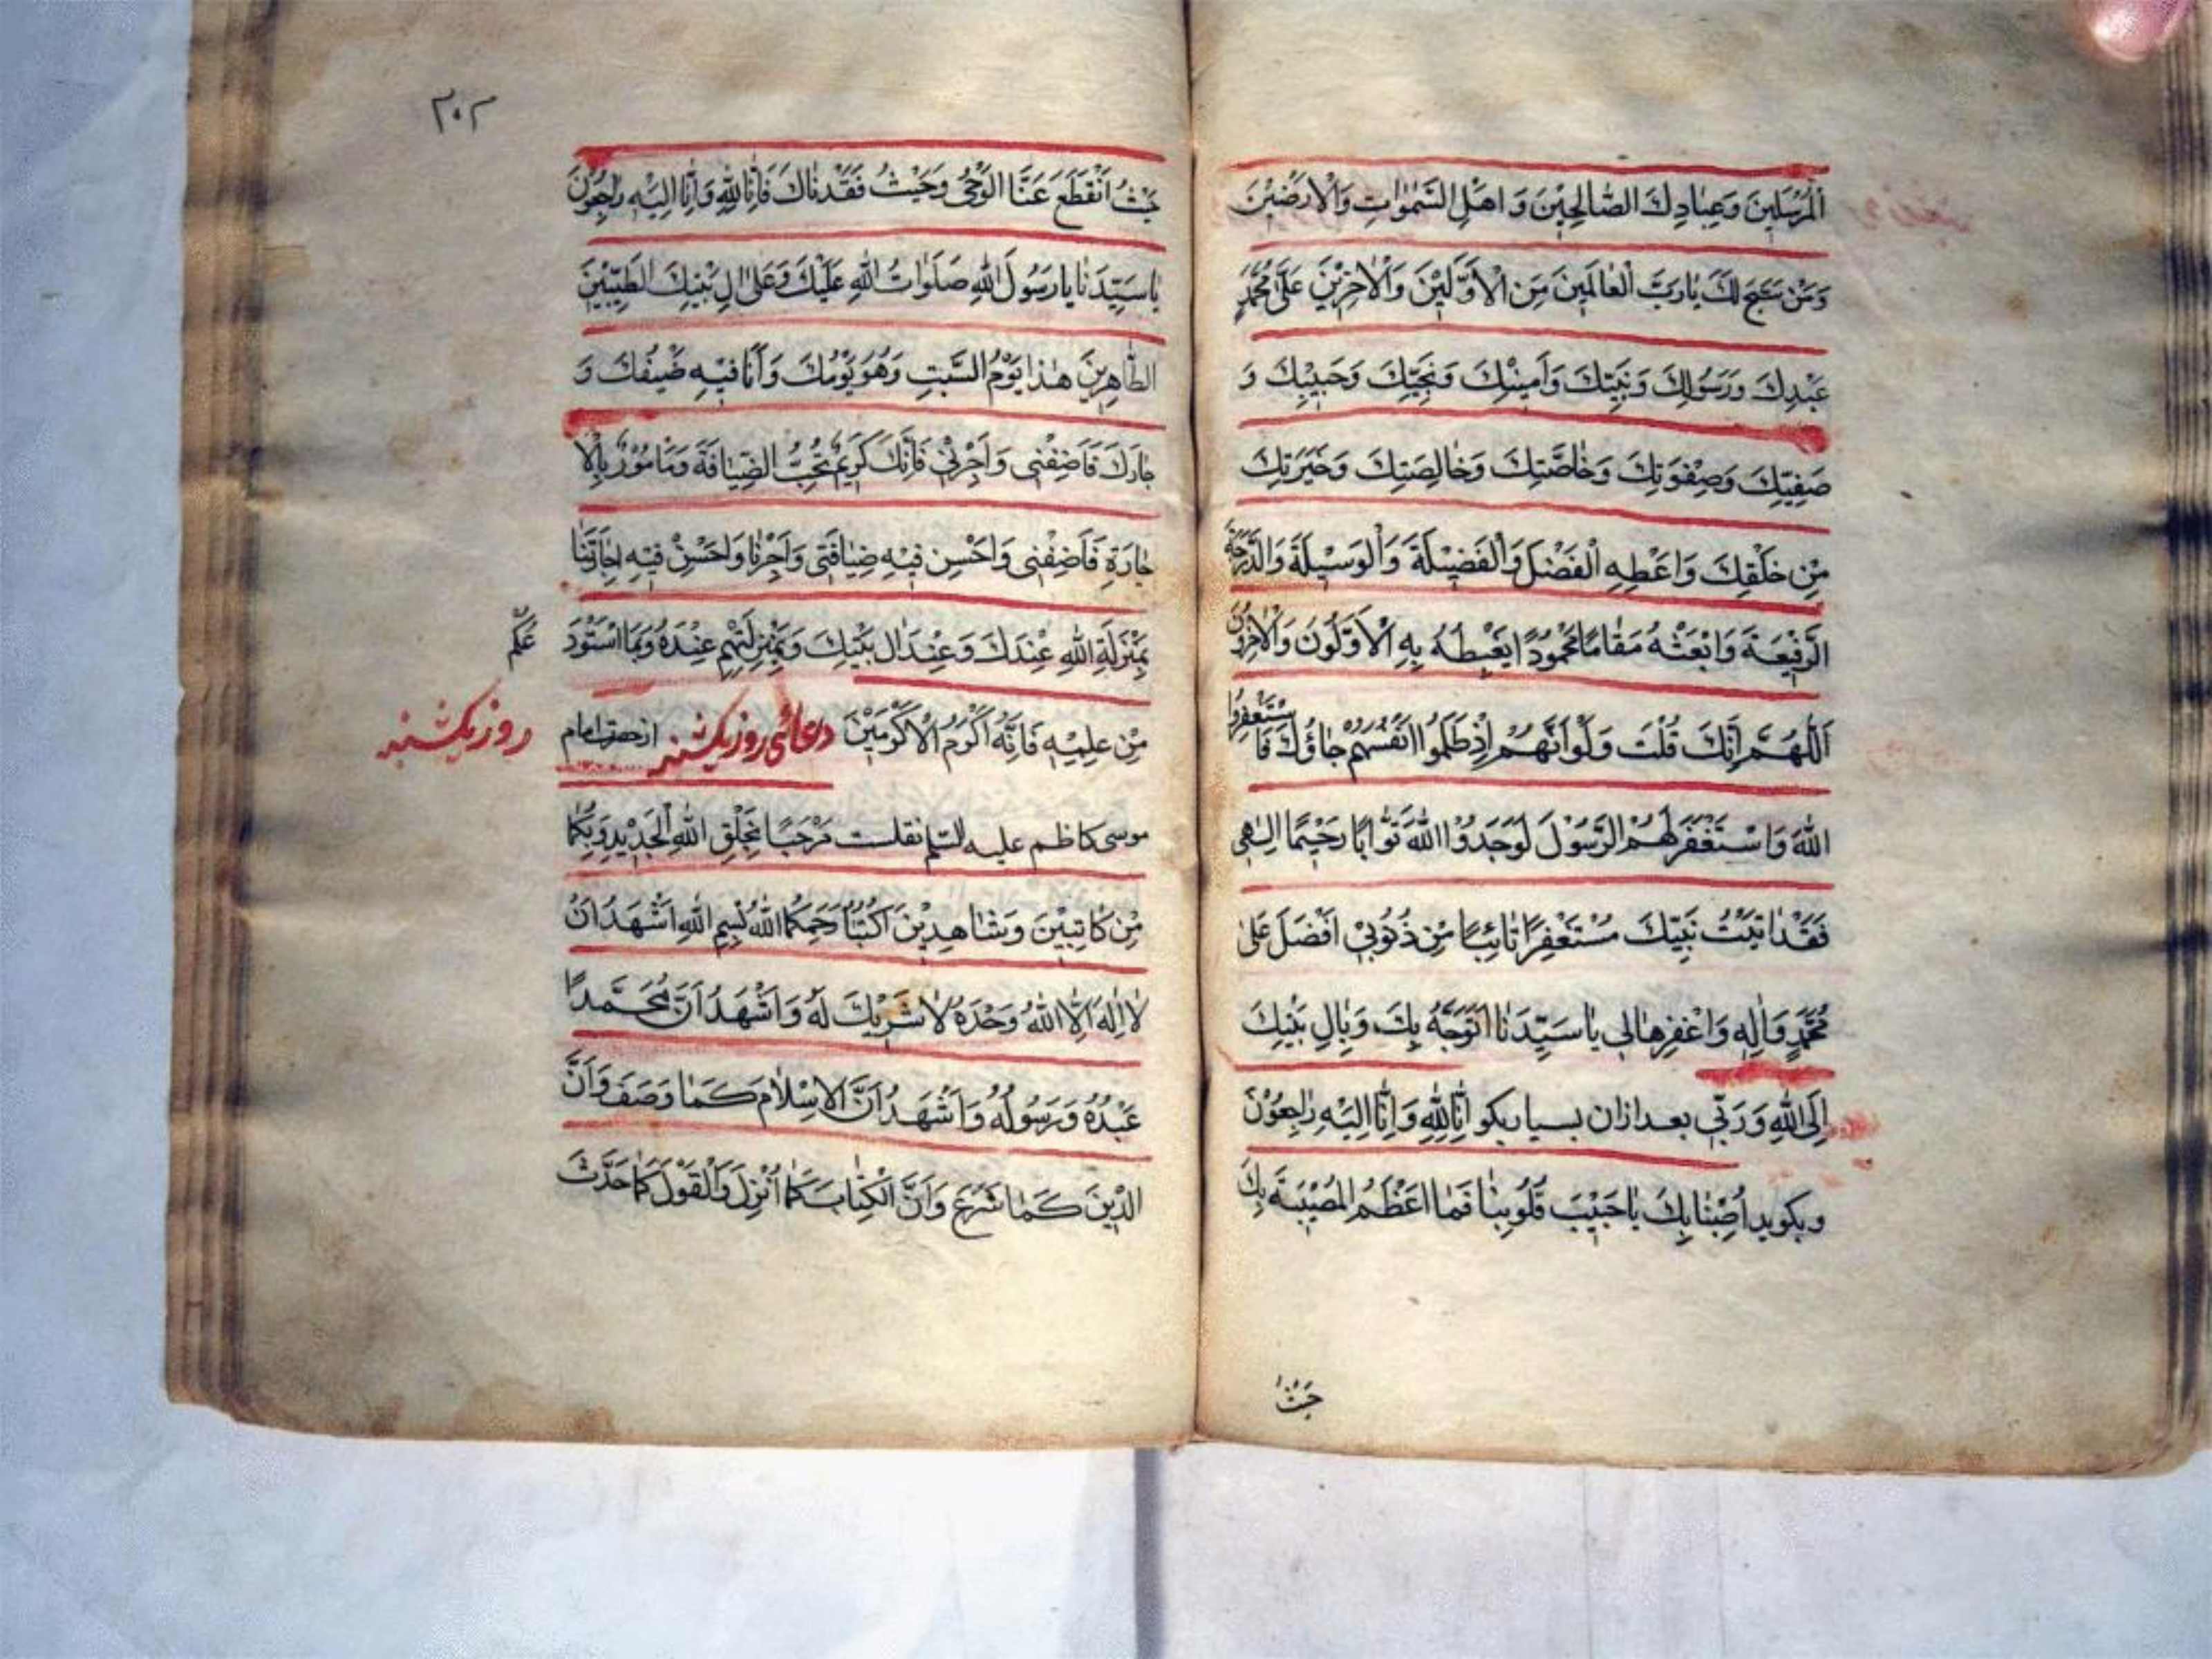 اَلْمُرْسَلِينَ وَعِبَادِكَ الصَّالِحِيْنَ وَ اَهْلِ السَّمٰوَاتِ وَالْاَرَضِيْنَ
وَمَنْ سَبَّحَ لَكَ يَارَبَّ الْعَالَمِينَ مِنَ الْاَوَّلِيْنَ وَالْاٰخِرِيْنَ عَلٰى مُحَمَّدٍ
عَبْدِكَ وَرَسُوْلِكَ وَنَبِيِّكَ وَاَمِيْنِكَ وَنَجِيِّكَ وَحَبِيْبِكَ وَ
صَفِيِّكَ وَصِفْوَتِكَ وَخَاصَّتِكَ وَخَالِصَتِكَ وَخَيْرَتِكَ
مِنْ خَلْقِكَ وَاَعْطِهِ الْفَضْلَ وَالْفَضِيْلَةَ وَالْوَسِيْلَةَ وَالدَّرَجَةَ
الرَّفِيْعَةَ وَابْعَثْهُ مَقَامًا مَحْمُوْدًا يَغْبِطُهُ بِهِ الْاَوَّلُوْنَ وَالْاٰخِرُوْنَ
اَللّٰهُمَّ اِنَّكَ قُلْتَ وَلَوْ اَنَّهُمْ اِذْ ظَلَمُوا اَنْفُسَهُمْ جَاؤُكَ فَاسْتَغْفَرُوا
اللّٰهَ وَاسْتَغْفَرَ لَهُمُ الرَّسُوْلُ لَوَجَدُوْا اللّٰهَ تَوَّابًا رَحِيْمًا اِلٰهِى
فَقَدْ اَتَيْتُ نَبِيَّكَ مُسْتَغْفِرًا تَائِبًا مِنْ ذُنُوْبِيْ اَفْضَلَ عَلٰى
مُحَمَّدٍ وَاٰلِهِ وَاغْفِرْهَا لِى يَا سَيِّدَنَا اَتَوَجَّهُ بِكَ وَبِاٰلِ بَيْتِكَ
اِلَى اللّٰهِ وَرَبِّى بعد ازان بسيار بكو اِنَّا لِلّٰهِ وَاِنَّا اِلَيْهِ رَاجِعُوْنَ
وبكويد اُصِبْنَا بِكَ يَا حَبِيْبَ قُلُوْبِنَا فَمَا اَعْظَمَ الْمُصِيْبَةَ بِكَ
حَيْثُ
۲۰۲
حَيْثُ انْقَطَعَ عَنَّا الْوَحْىُ وَحَيْثُ فَقَدْنَاكَ فَاِنَّا لِلّٰهِ وَاِنَّا اِلَيْهِ رَاجِعُوْنَ
يَا سَيِّدَنَا يَا رَسُوْلَ اللّٰهِ صَلَوَاتُ اللّٰهِ عَلَيْكَ وَعَلٰى اٰلِ بَيْتِكَ الطَّيِّبِيْنَ
الطَّاهِرِيْنَ هٰذَا يَوْمُ السَّبْتِ وَهُوَ يَوْمُكَ وَاَنَا فِيْهِ ضَيْفُكَ وَ
جَارُكَ فَاَضِفْنِى وَاَجِرْنِيْ فَاِنَّكَ كَرِيْمٌ تُحِبُّ الضِّيَافَةَ وَمَاْمُوْرٌ بِالْا
جَارَةِ فَاَضِفْنِى وَاَحْسِنْ فِيْهِ ضِيَافَتِى وَاَجِرْنَا وَاَحْسِنْ فِيْهِ اِجَارَتَنَا
بِمَنْزِلَةِ اللّٰهِ عِنْدَكَ وَعِنْدَ اٰلِ بَيْتِكَ وَبِمَنْزِلَتِهِمْ عِنْدَهُ وَبِمَا اسْتَوْدَ
عَكُمْ
مِنْ عِلْمِهِ فَاِنَّهُ اَكْرَمُ الْاَكْرَمِيْنَ دعائى روز يكشنبه از حضرت امام
روز يكشنبه
موسى كاظم عليه السلام نقلست مَرْحَبًا بِخَلْقِ اللّٰهِ الْجَدِيْدِ وَبِكُمَا
مِنْ كَاتِبَيْنِ وَشَاهِدَيْنِ اُكْتُبَا رَحِمَكُمَا اللّٰهُ بِسْمِ اللّٰهِ اَشْهَدُ اَنْ
لَا اِلٰهَ اِلَّا اللّٰهُ وَحْدَهُ لَا شَرِيْكَ لَهُ وَاَشْهَدُ اَنَّ مُحَمَّدًا
عَبْدُهُ وَرَسُوْلُهُ وَاَشْهَدُ اَنَّ الْاِسْلَامَ كَمَا وَصَفَ وَاَنَّ
الدِّيْنَ كَمَا شَرَعَ وَاَنَّ الْكِتَابَ كَمَا اَنْزَلَ وَالْقَوْلَ كَمَا حَدَّثَ